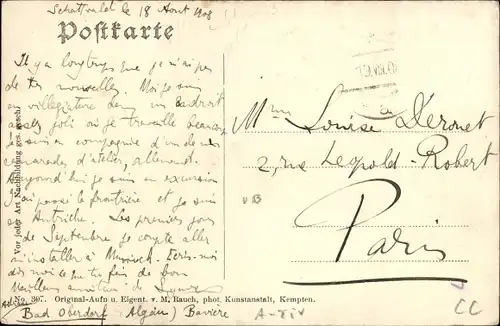 Schattwald le 18 Août 1908
Postkarte
Il y a longtemps que je n'ai pas
de tes nouvelles. Moi je suis
en villégiature dans un endroit
assez joli où je travaille beaucoup
je suis en compagnie d'un de mes
camarades d'atelier, allemand.
Aujourd'hui je suis en excursion
j'ai passé la frontière et je suis
en Autriche. Les premiers jours
de Septembre je compte aller
m'installer à Munich. Ecris-moi
dis moi ce que tu fais de bon
Meilleures amitiés de
Adr.
Bad Oberdorf (Algäu) Bavière
Vor jeder Art Nachbildung ges. gesch.
No. 307. Original-Aufn u. Eigent. v. M. Rauch, phot. Kunstanstalt, Kempten.
Louise Dérouet
2, rue Leopold-Robert
Paris
VB
A-XIV
CC